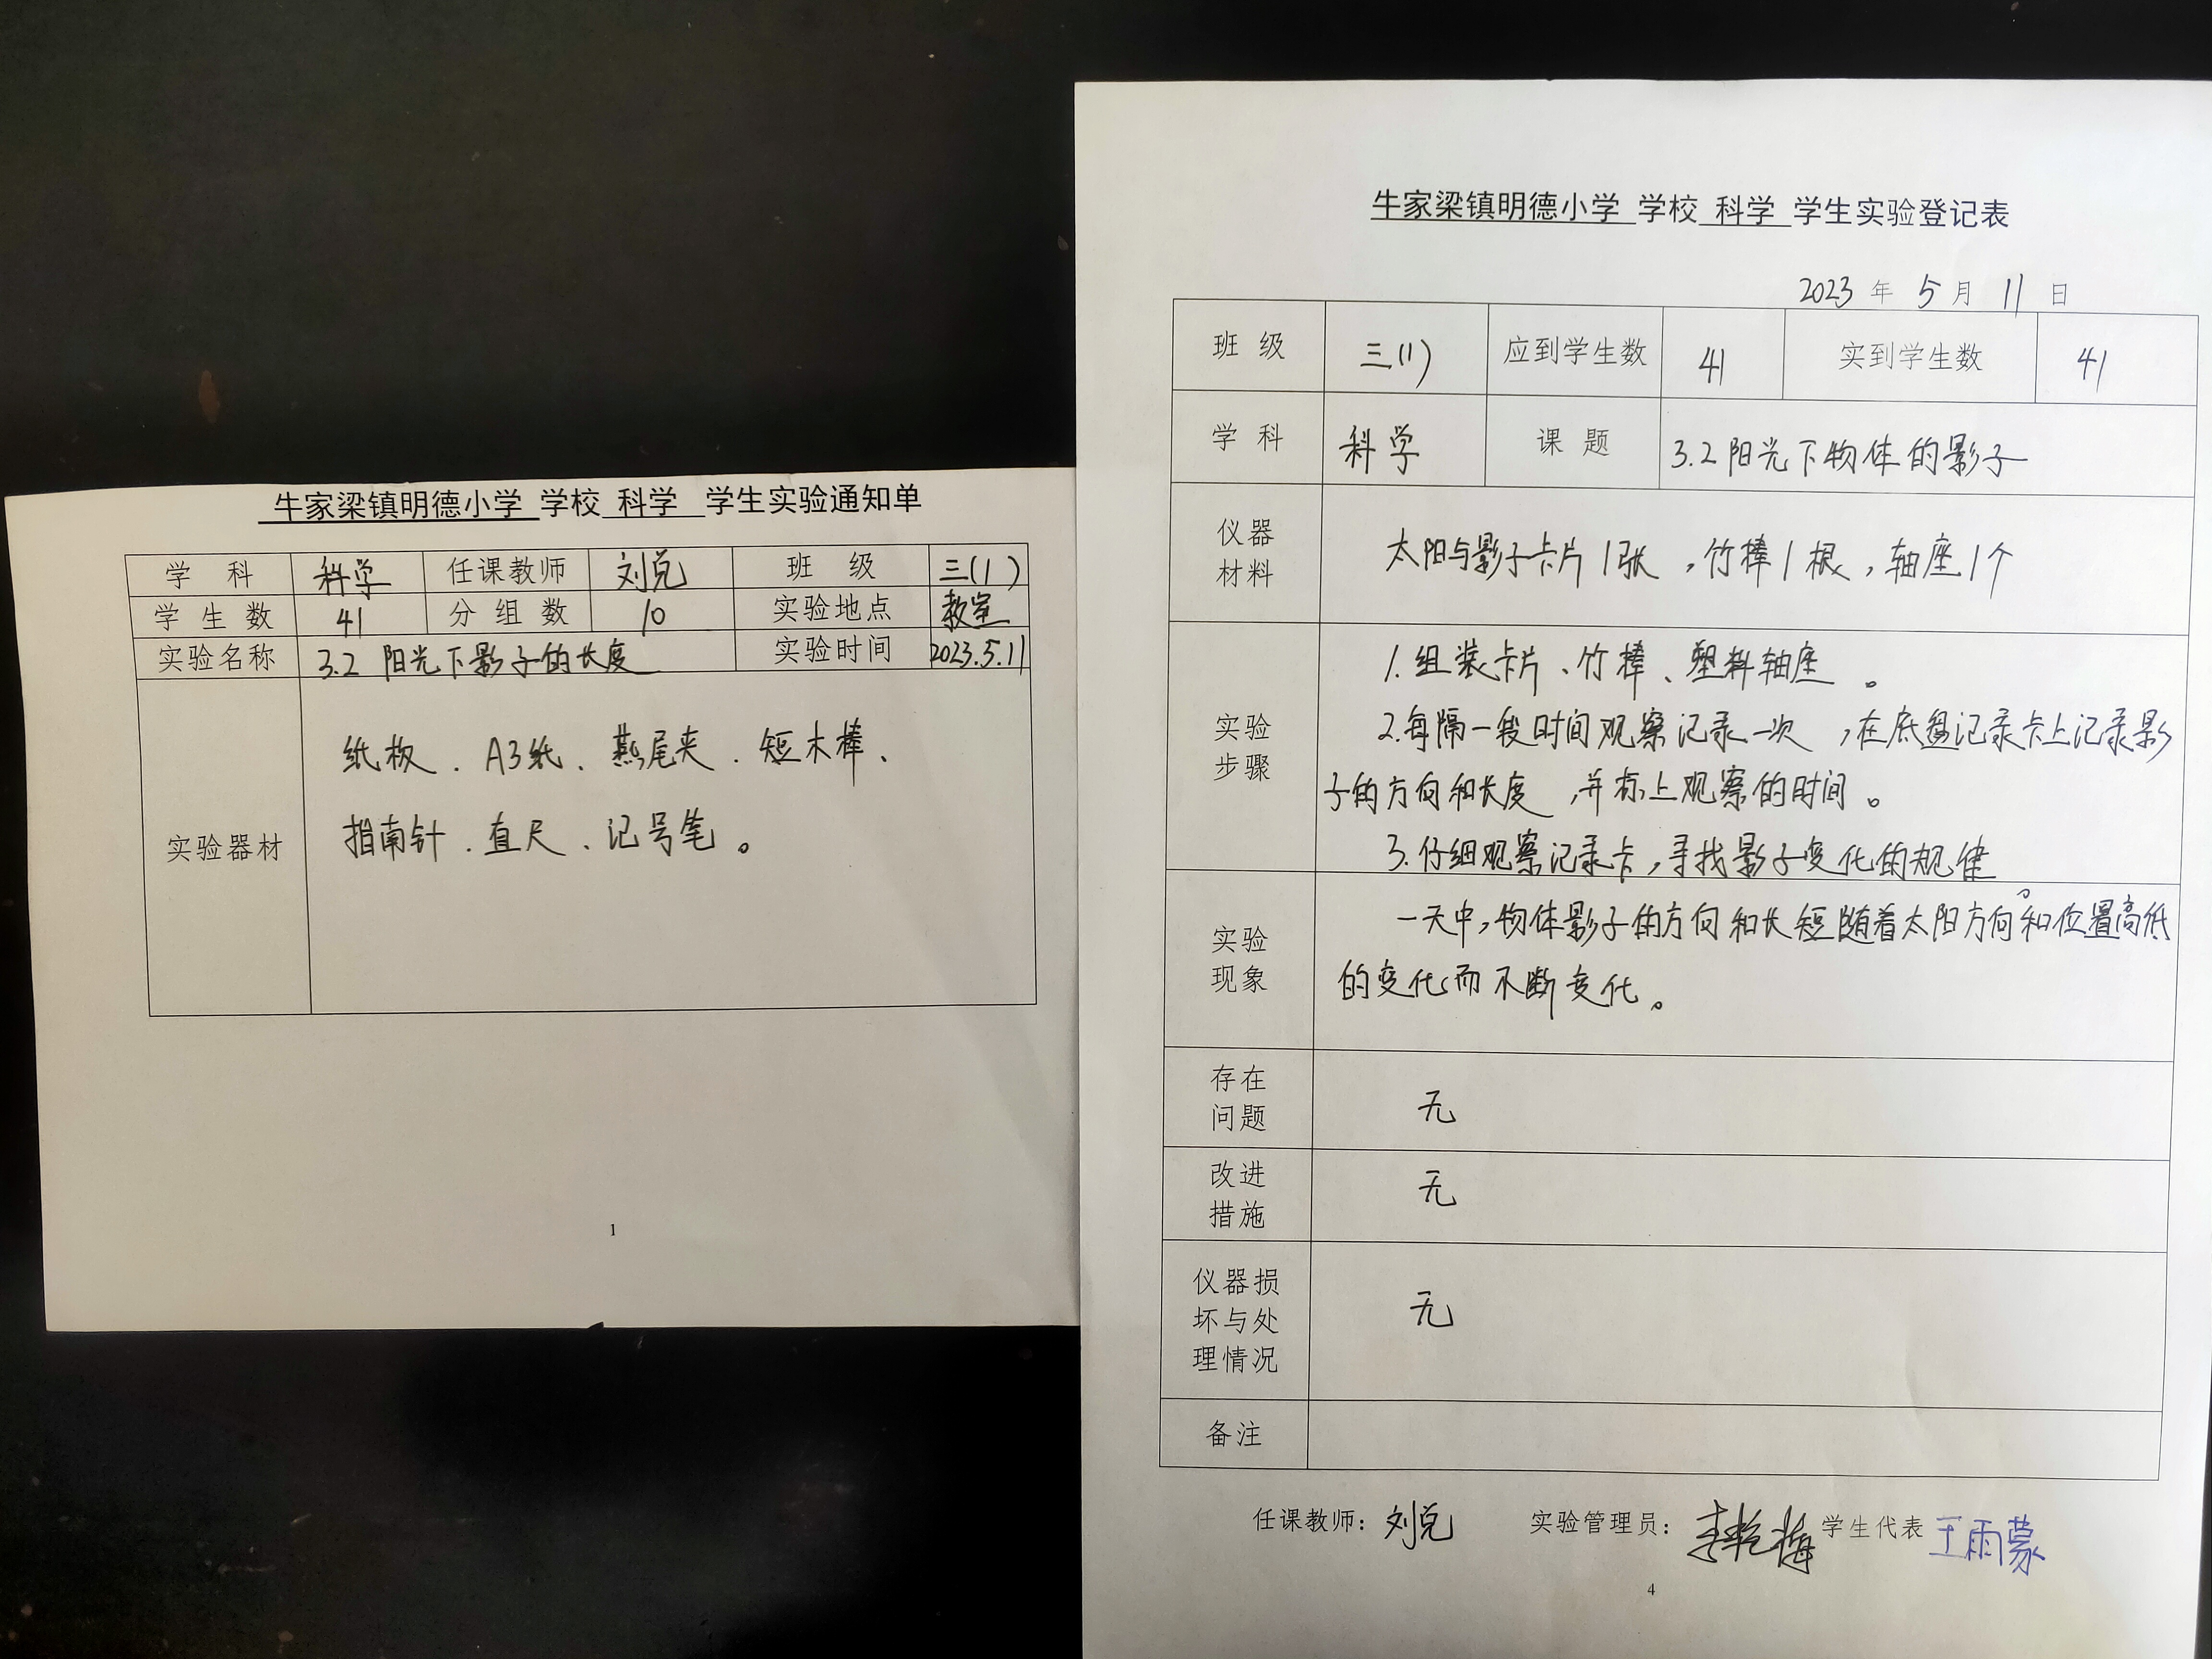 牛家梁镇明德小学 学校 科学 学生实验通知单
学 科 科学 任课教师 刘兑 班 级 三(1)
学 生 数 41 分 组 数 10 实验地点 教室
实验名称 3.2 阳光下影子的长度 实验时间 2023.5.11
实验器材
纸板、A3纸、燕尾夹、短木棒、
指南针、直尺、记号笔。
1
牛家梁镇明德小学 学校 科学 学生实验登记表
2023 年 5 月 11 日
班 级 三(1) 应到学生数 41 实到学生数 41
学 科 科学 课 题 3.2阳光下物体的影子
仪器
材料
太阳与影子卡片1张,竹棒1根,轴座1个
实验
步骤
1.组装卡片、竹棒、塑料轴座。
2.每隔一段时间观察记录一次,在底盘记录卡上记录影
子的方向和长度,并标上观察的时间。
3.仔细观察记录卡,寻找影子变化的规律。
实验
现象
一天中,物体影子的方向和长短随着太阳方向和位置高低
的变化而不断变化。
存在
问题
无
改进
措施
无
仪器损
坏与处
理情况
无
备注
任课教师: 刘兑 实验管理员: 学生代表 王雨蒙
4